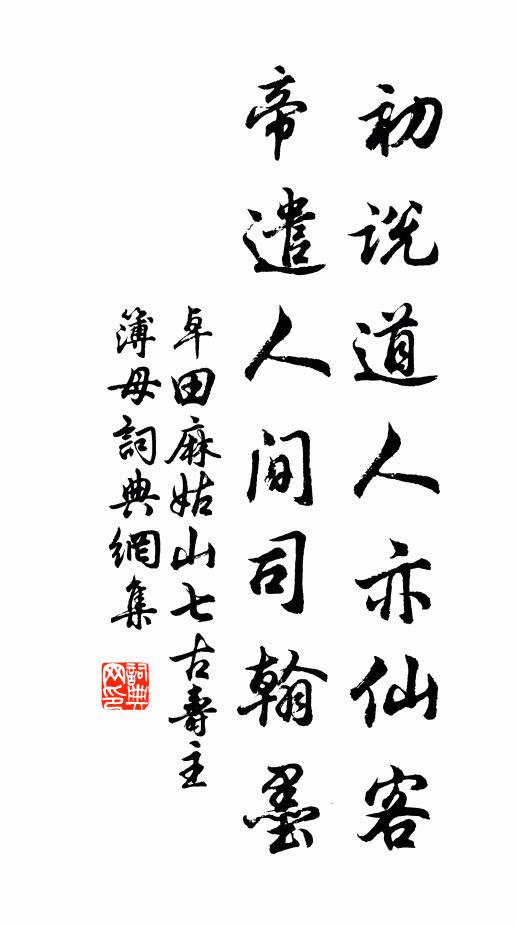 初說道人亦仙客
帝遣人間司翰墨
卓田麻姑山七古壽主
簿母詞典網集
詞典网印